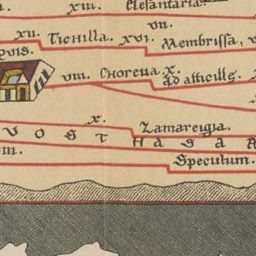 XIII. Elefantaria.
VII.
XII. Tichilla. XVI. Membrissa, V
quis.
VIII. Choreva X. Ad atticille.
X. Zamareigia.
V O S T H A G A A
III. Speculum.